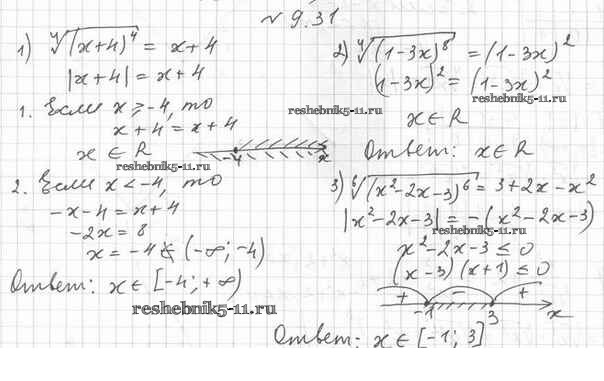 № 9.31
1) ∜(x+4)⁴ = x+4
|x+4| = x+4
1. Если x ≥ -4, то
x+4 = x+4
x ∈ R
-4 x
2. Если x < -4, то
-x-4 = x+4
-2x = 8
x = -4 ∉ (-∞; -4)
Ответ: x ∈ [-4; +∞)
2) ∜(1-3x)⁸ = (1-3x)²
(1-3x)² = (1-3x)²
x ∈ R
Ответ: x ∈ R
3) ⁶√(x²-2x-3)⁶ = 3+2x-x²
|x²-2x-3| = -(x²-2x-3)
x²-2x-3 ≤ 0
(x-3)(x+1) ≤ 0
+ - +
-1 3 x
Ответ: x ∈ [-1; 3]
reshebnik5-11.ru
reshebnik5-11.ru
reshebnik5-11.ru
reshebnik5-11.ru
reshebnik5-11.ru